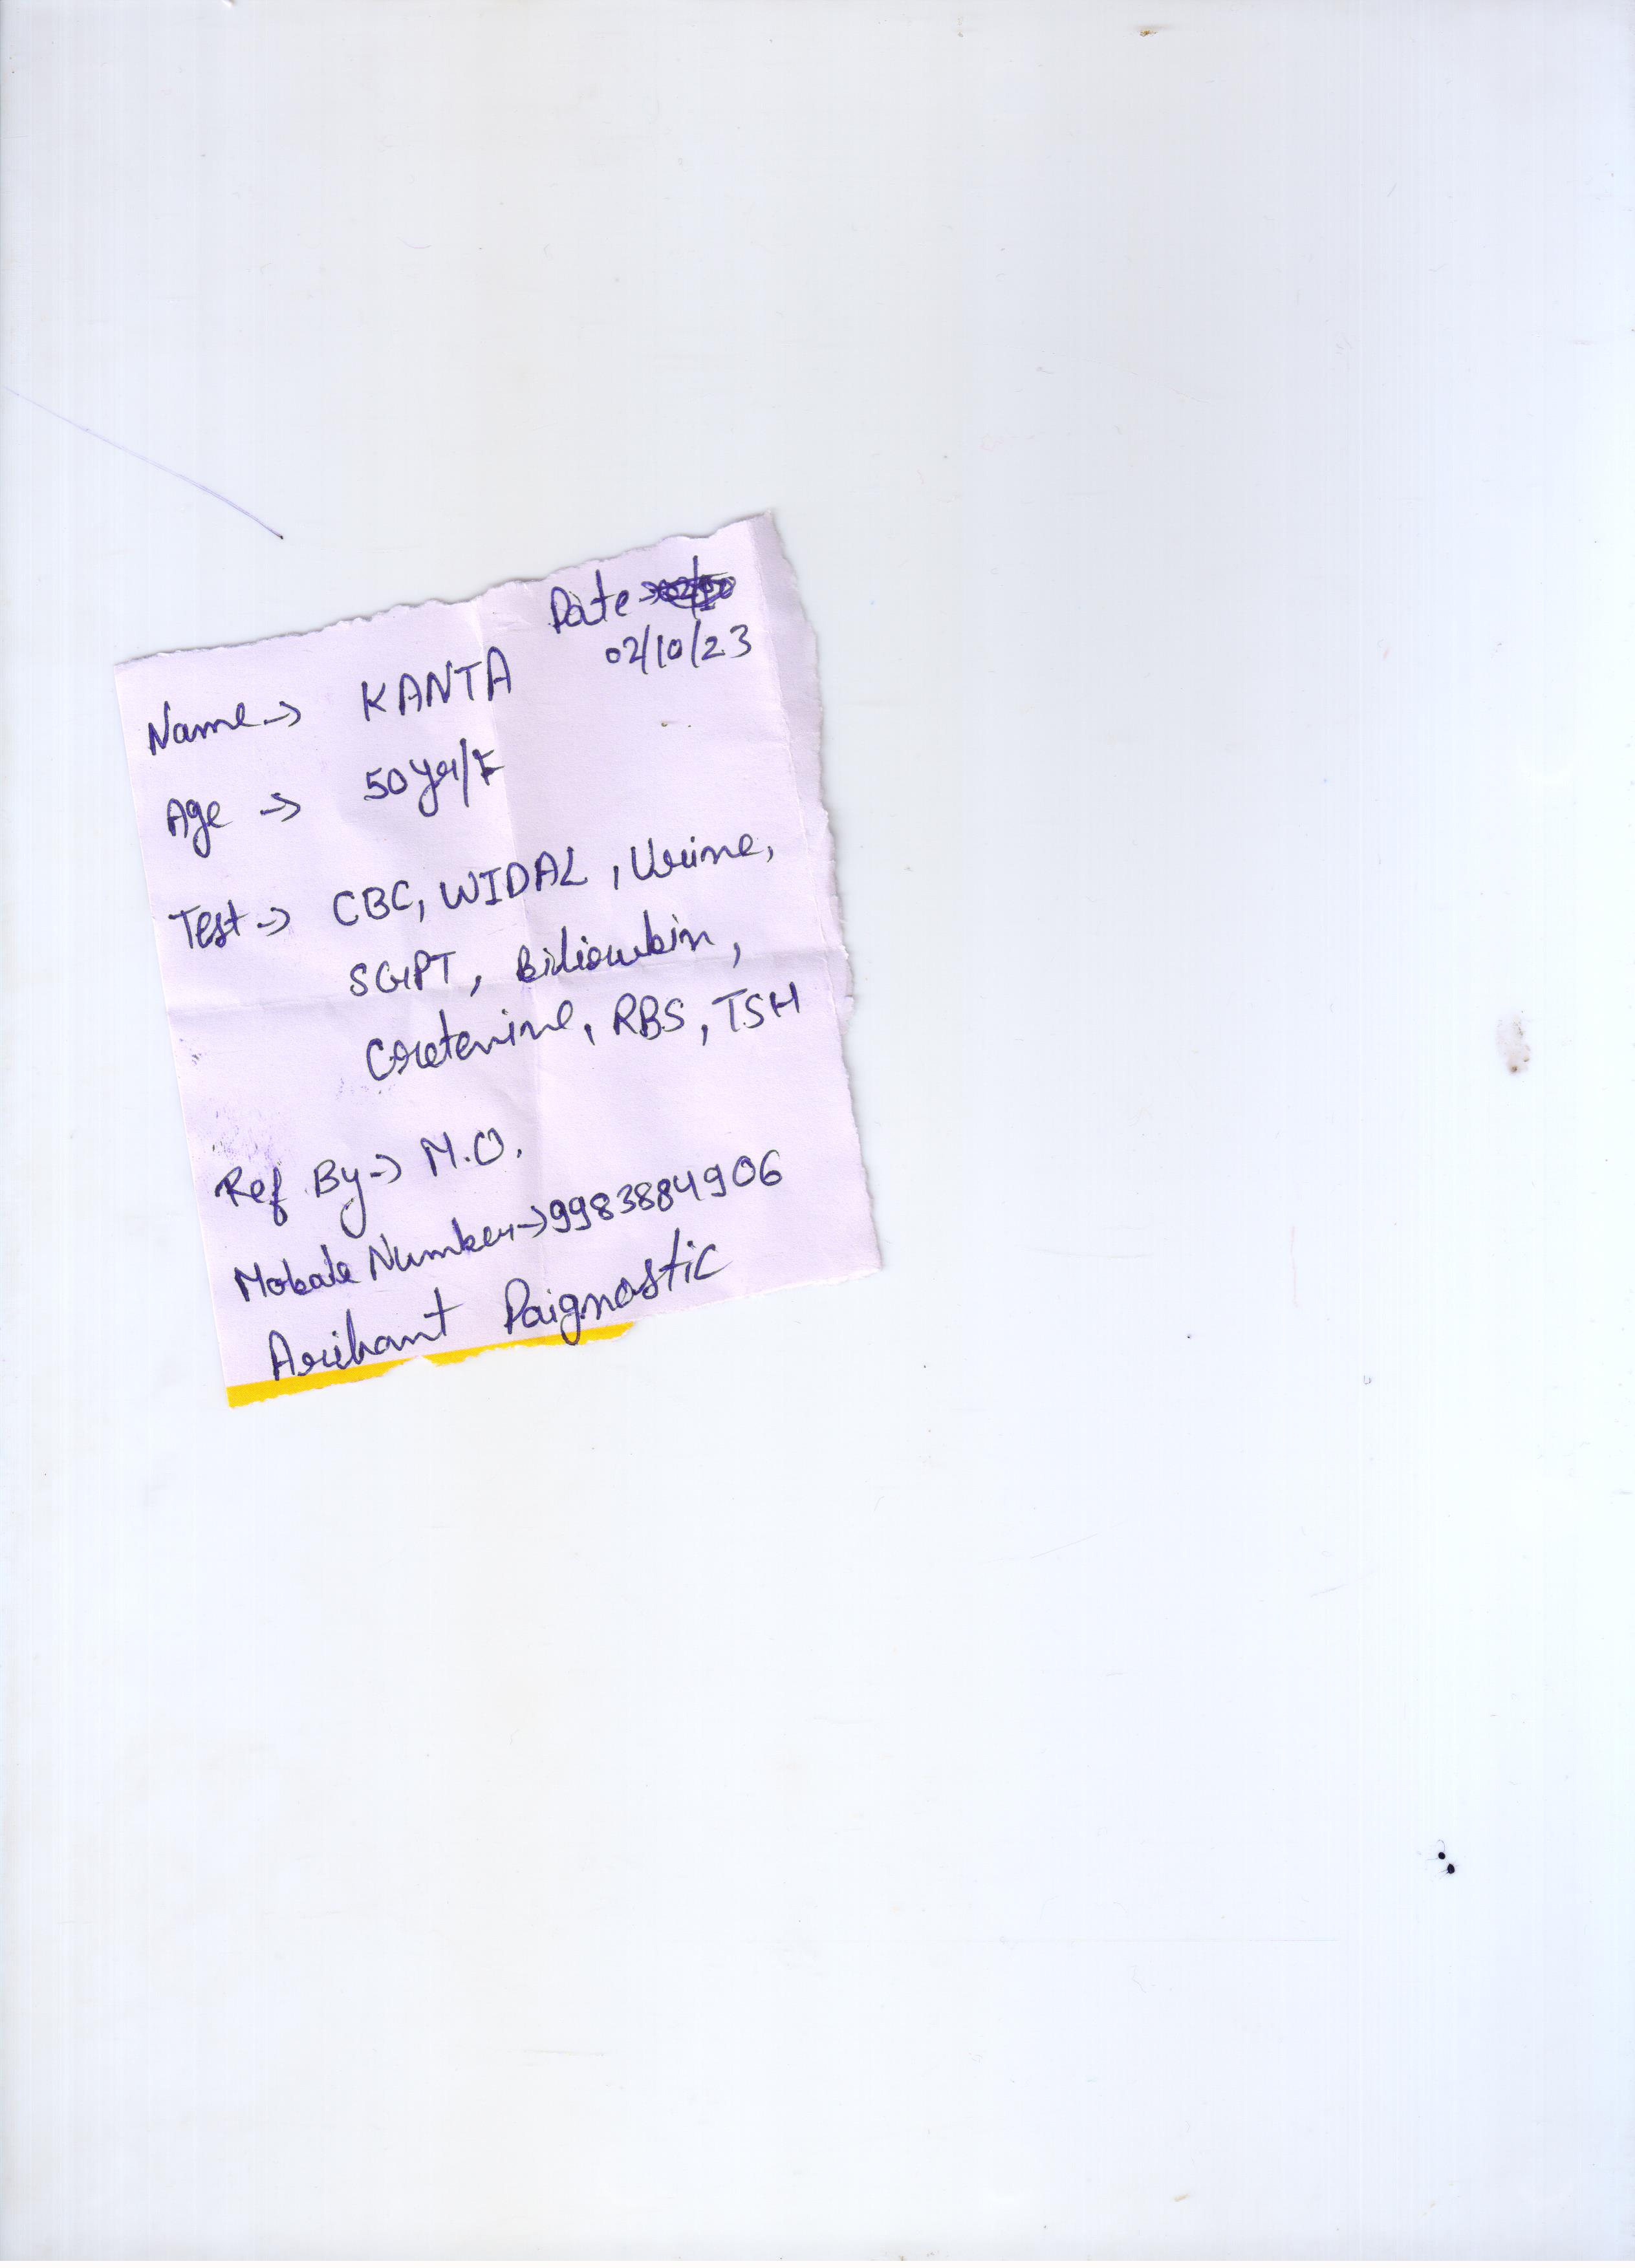 Date →
02/10/23
Name → KANTA
Age → 50 yr/F
Test → CBC, WIDAL, Urine,
SGPT, Bilirubin,
Cretenine, RBS, TSH
Ref By → M.O.
Mobale Number → 9983884906
Arihant Daignostic